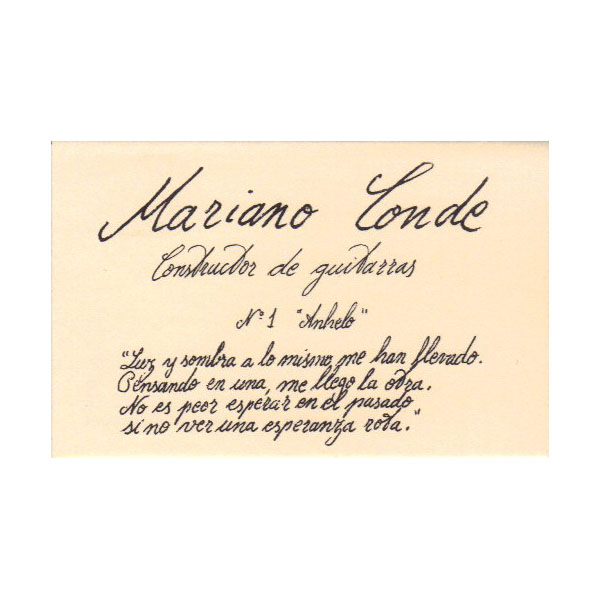 Mariano Conde
Constructor de guitarras
Nº 1 "Anhelo"
"Luz y sombra a lo mismo me han llevado.
Pensando en una, me llego la otra.
No es peor esperar en el pasado
si no ver una esperanza rota."